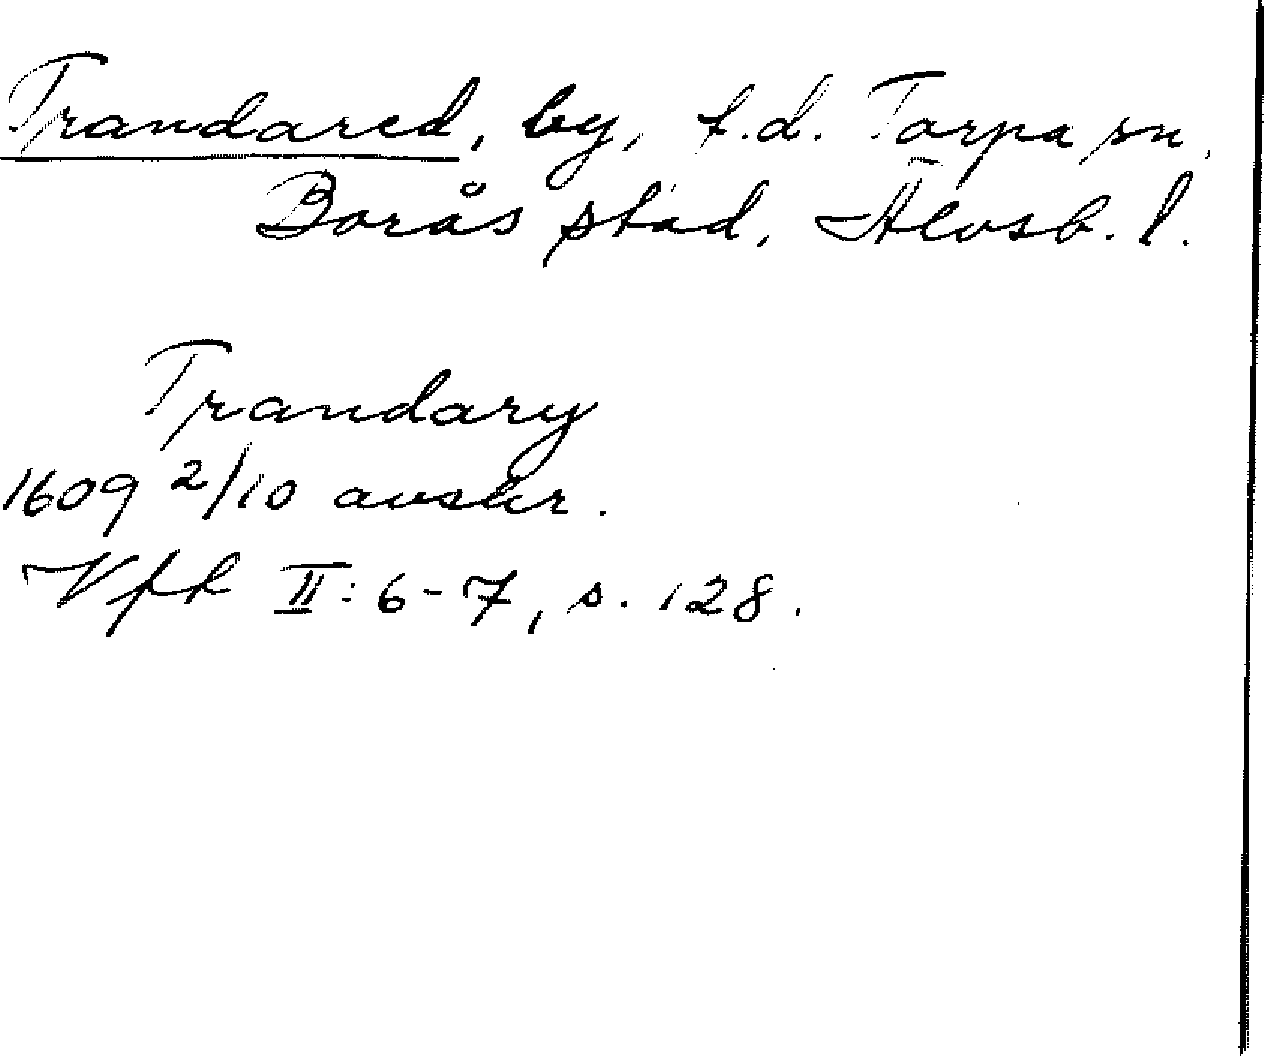 Trandared, by, f.d. Torpa sn,
Borås stad, Älvsb. l.
Trandary
1609 2/10 avskr.
Vfk II: 6-7, s. 128.